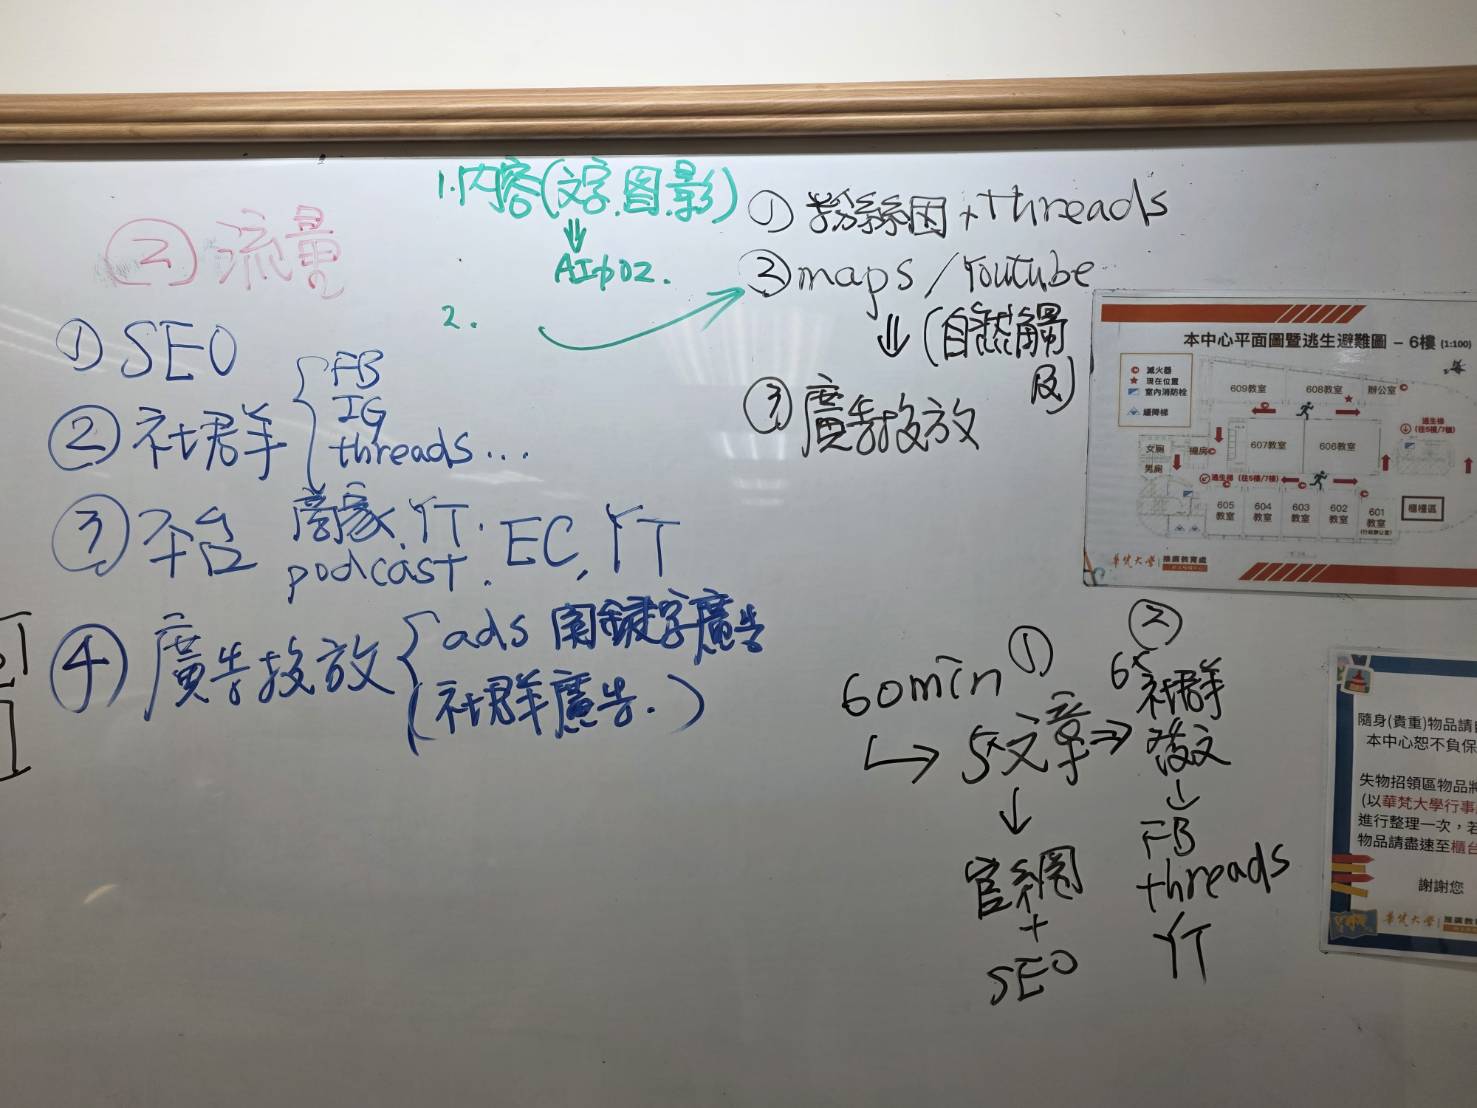 ② 流量
① SEO
② 社群
FB
IG
threads...
③ 平台
商家, YT.
podcast.
EC, YT
④ 廣告投放
ads 関鍵字廣告
(社群廣告.)
1.內容(文字.圖.影)
⇓
2.
① 粉絲団 + threads
② maps / Youtube
⇓ (自然觸及)
③ 廣告投放
60min
①
→ 5文章 ⇒
↓
官網
+
SEO
②
社群
發文
↓
FB
threads
YT
本中心平面圖暨逃生避難圖 – 6樓 (1:100)
滅火器
現在位置
室內消防栓
緩降梯
609教室
608教室
辦公室
607教室
606教室
女廁
男廁
機房
逃生梯
(往5樓/7樓)
逃生梯 (往5樓/7樓)
605教室
604教室
603教室
602教室
601教室
櫃檯區
華梵大學 推廣教育處
隨身(貴重)物品請
本中心恕不負保
失物招領區物品將
(以華梵大學行事
進行整理一次，若
物品請盡速至櫃台
謝謝您
華梵大學